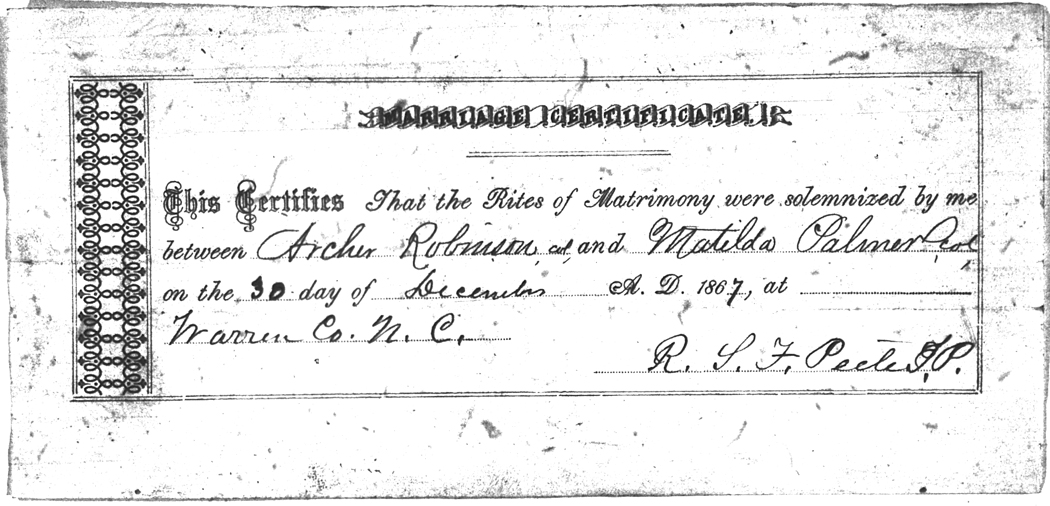 MARRIAGE CERTIFICATE.
This Certifies That the Rites of Matrimony were solemnized by me
between Archer Robinson, col, and Matilda Palmer, col
on the 30 day of December A. D. 1867, at
Warren Co. N. C.
R. S. F. Peete J.P.